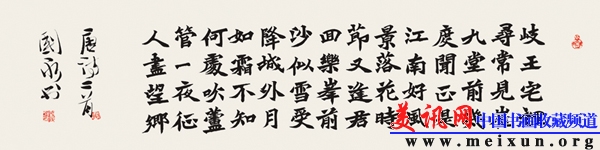 岐王宅裡
尋常見崔
九堂前幾
度聞正是
江南好風
景落花時
節又逢君
回樂峯前
沙似雪受
降城外月
如霜不知
何處吹蘆
管一夜征
人盡望鄉
唐詩二首
國
美讯网 中国书画收藏频道
www.meixun.org